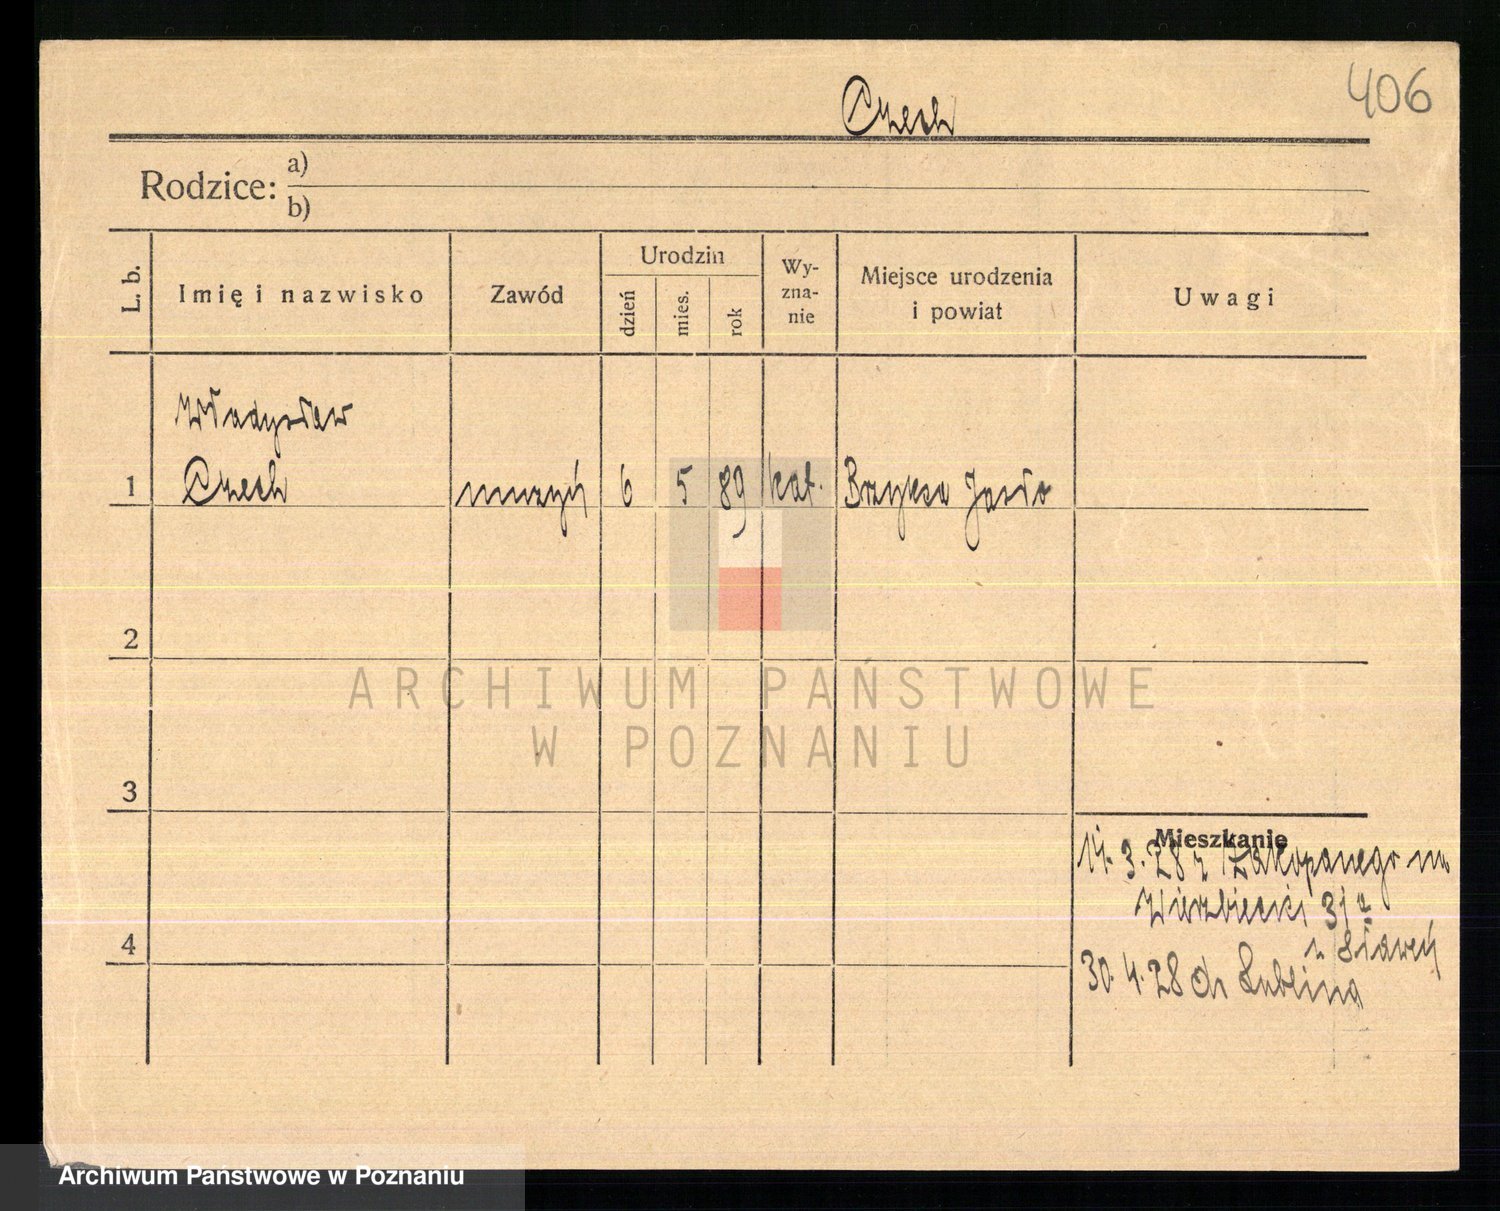 406
Czech
Rodzice: a)
b)
L. b.
Imię i nazwisko
Zawód
Urodzin
dzień
mies.
rok
Wy-
zna-
nie
Miejsce urodzenia
i powiat
Uwagi
Władysław
1 Czech muzyk 6 5 89 kat. Jasło
2
3
4
Mieszkanie
14.3.28 z Zakopanego
Wierzbięcici 31a
30.4.28 do Lublina
ARCHIWUM PAŃSTWOWE
W POZNANIU
Archiwum Państwowe w Poznaniu